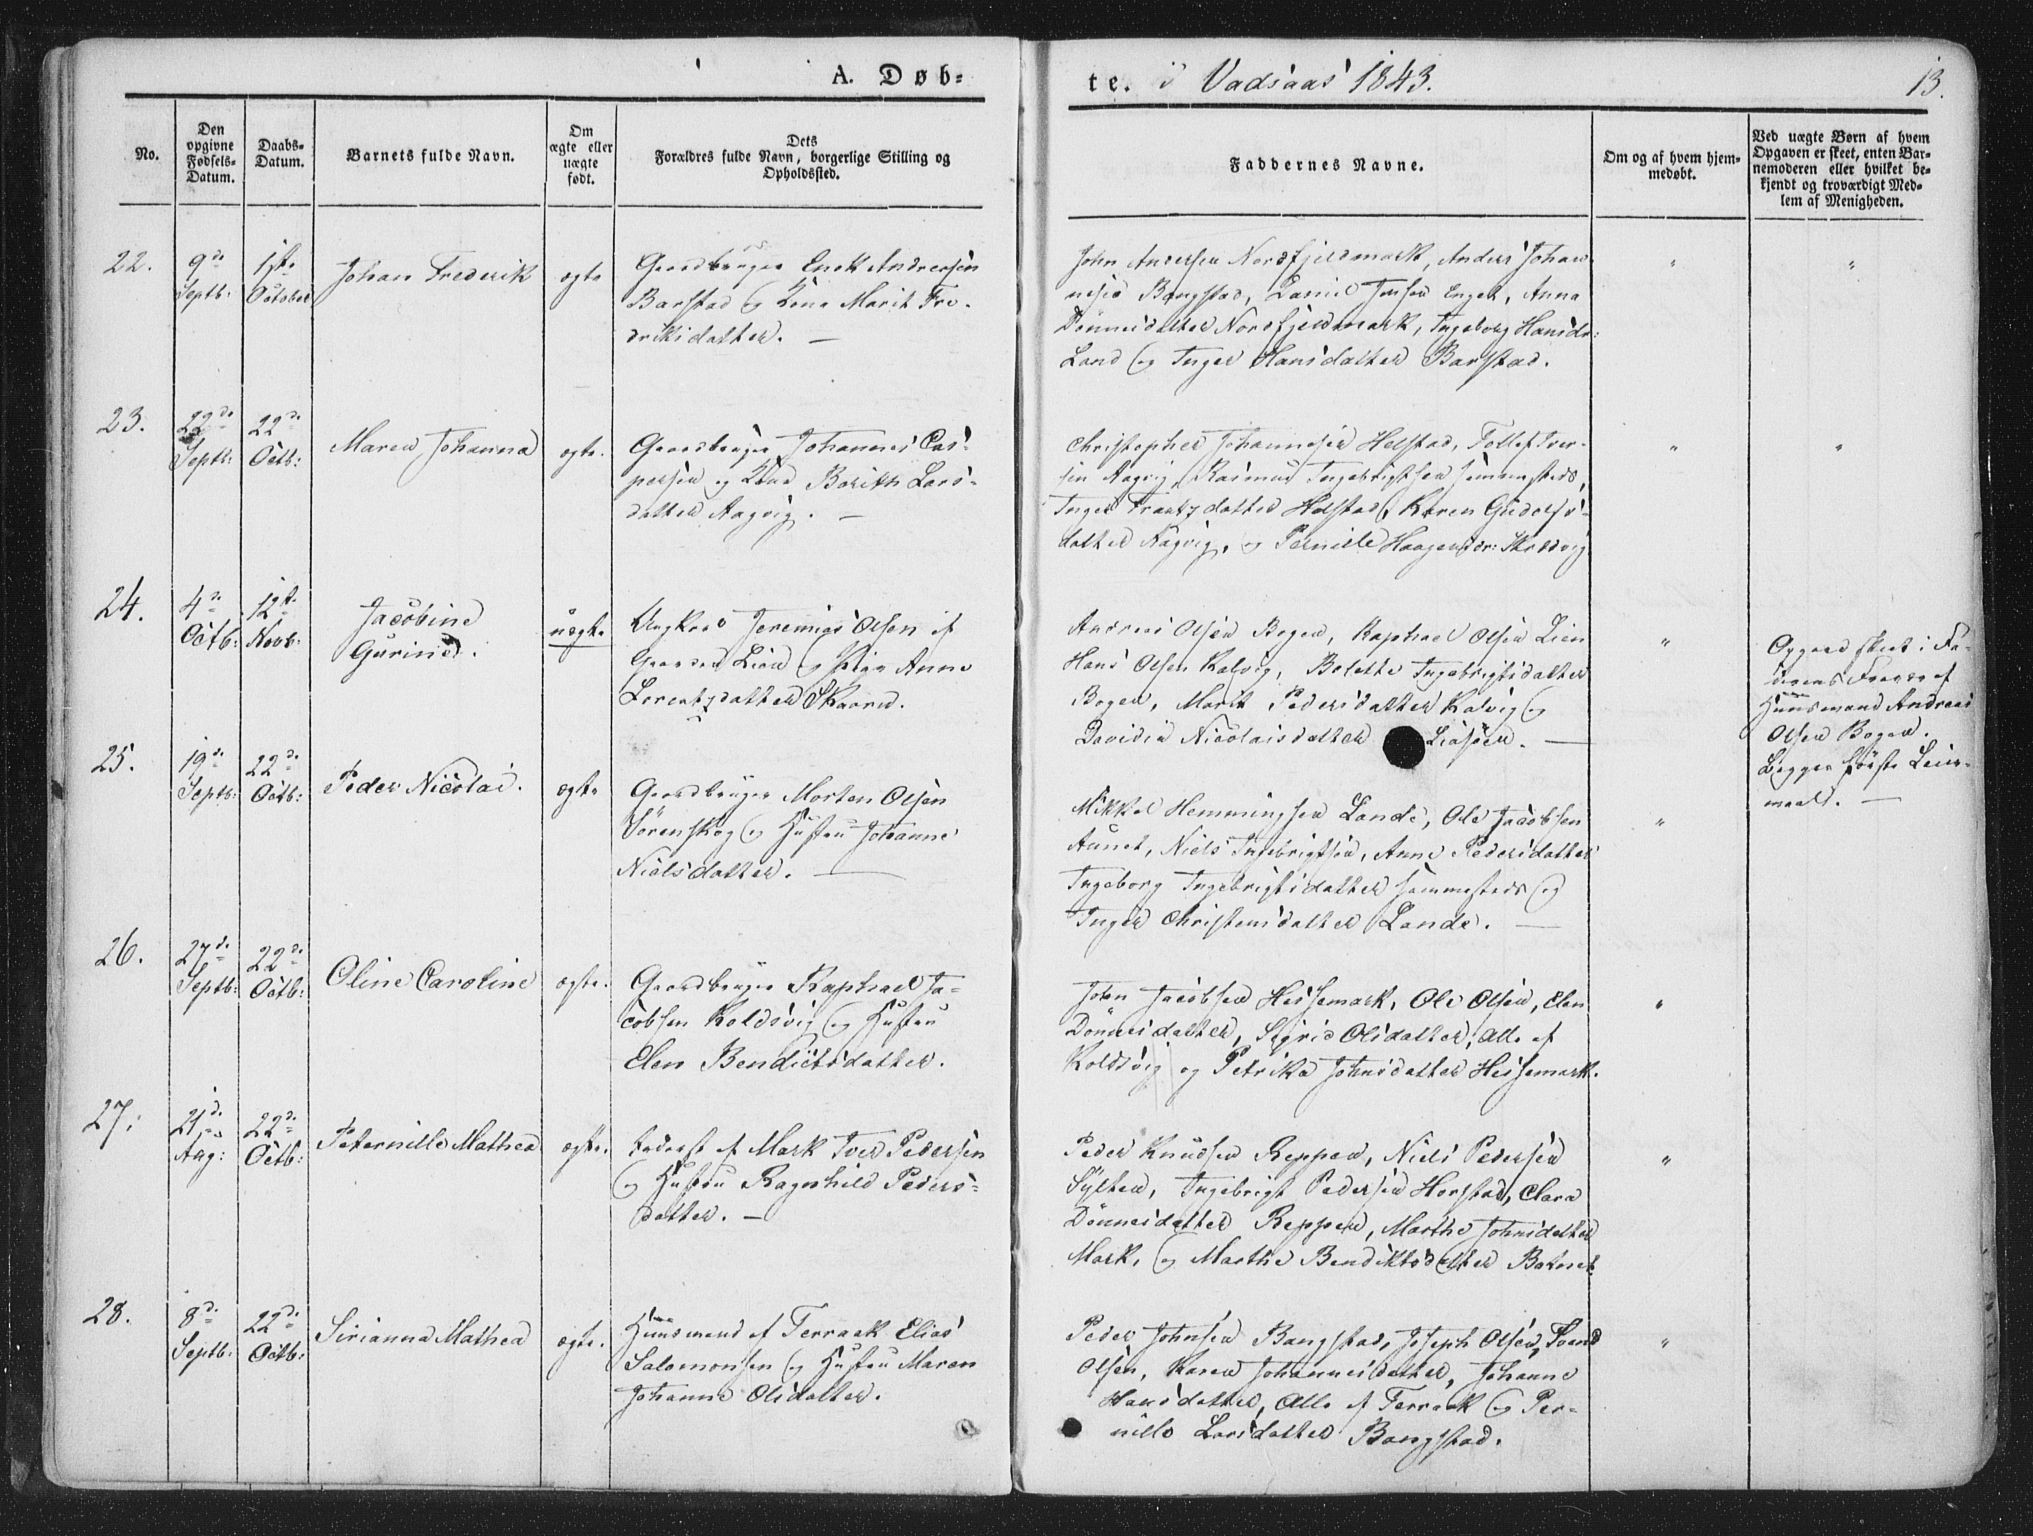 A. Døb-
te. i Vadsaas 1843.
13.
No.
Den
opgivne
Fødsels-
Datum.
Daabs-
Datum.
Barnets fulde Navn.
Om
ægte eller
uægte
født.
Dets
Forældres fulde Navn, borgerlige Stilling og
Opholdssted.
Faddernes Navne.
Om og af hvem hjem-
medøbt.
Ved uægte Børn af hvem
Opgaven er skeet, enten Bar-
nemoderen eller hvilket be-
kjendt og troværdigt Med-
lem af Menigheden.
22.
9de
Septb:
1ste
October
Johan Frederik
ægte
Gaardbruger Enok Andreasen
Barstad og Kone Marit Fre-
driksdatter. —
John Andersen Nordfjeldmark, Anders Johan-
nesen Bangstad, Daniel Jensen Enget, Anna
Dønnesdatter Nordfjeldmark, Ingeborg Hansdr:
Land og Inger Hansdatter Barstad.
"
"
23.
22de
Septb:
22de
Octb:
Maren Johanna
ægte.
Gaardbruger Johannes Cas-
persen og Kone Berith Lars-
datter Aagvig. —
Christopher Johannesen Helstad, Tollef Iver-
sen Aagvig, Rasmus Ingebrigtsen sammesteds,
Inger Frantzdatter Helstad, Karen Gudolfs-
datter Aagvig, og Pernille Haagensdr:
"
"
24.
4de
Octb:
12te
Novb:
Jacobine
Gurine.
uægte
Ungkarl Jeremias Olsen af
Gaarden Lien og Pige Anne
Lorentzdatter Skaard.
Andreas Olsen Bogen, Raphael Olsen Lien
Hans Olsen Kalvig, Bolette Ingebrigtsdatter
Bogen, Marit Pedersdatter Kalvig og
Davidia Nicolaisdatter Liasøen. —
"
Opgaven skeet i Fa-
derens Fravær af
Huusmand Andreas
Olsen Bogen.
Begges første Leier-
maal. —
25.
19de
Septb:
22de
Octb:
Peder Nicolai.
ægte
Gaardbruger Morten Olsen
Sørenskog og Hustru Johanne
Nielsdatter. —
Mikkel Hemmingsen Lande, Ole Jacobsen
Aunet, Niels Ingebrigtsen, Anne Pedersdatter
Ingeborg Ingebrigtsdatter sammesteds og
Inger Christensdatter Lande. —
"
26.
27de
Septb:
22de
Octb:
Oline Caroline
ægte.
Gaardbruger Raphael Ja-
cobsen Koldsvig og Hustru
Elen Bendictsdatter.
John Jacobsen Heisemark, Ole Olsen, Elen
Dønnesdatter, Sigrid Olsdatter, Alle af
Koldsvig og Petrika Johnsdatter Heisemark.
"
27.
21de
Aug:
22de
Octb:
Peternille Mathea
ægte.
Inderst af Mark Iver Pedersen
og Hustru Ragnhild Peders-
datter. —
Peder Knudsen Reppen, Niels Pedersen
Sylten, Ingebrigt Pedersen Horstad, Clara
Dønnesdatter Reppen, Marthe Johnsdatter
Mark, og Marthe Bendiktsdatter
"
28.
8de
Septb:
22de
Octb:
Sirianna Mathea
ægte.
Huusmand af Terraek Elias
Salomonsen og Hustru Maren
Johanne Olsdatter.
Peder Johnsen Bangstad, Joseph Olsen, Svend
Olsen, Karen Johannesdatter, Johanne
Hansdatter, Alle af Terraek og Per-
nille Larsdatter Bangstad.
"